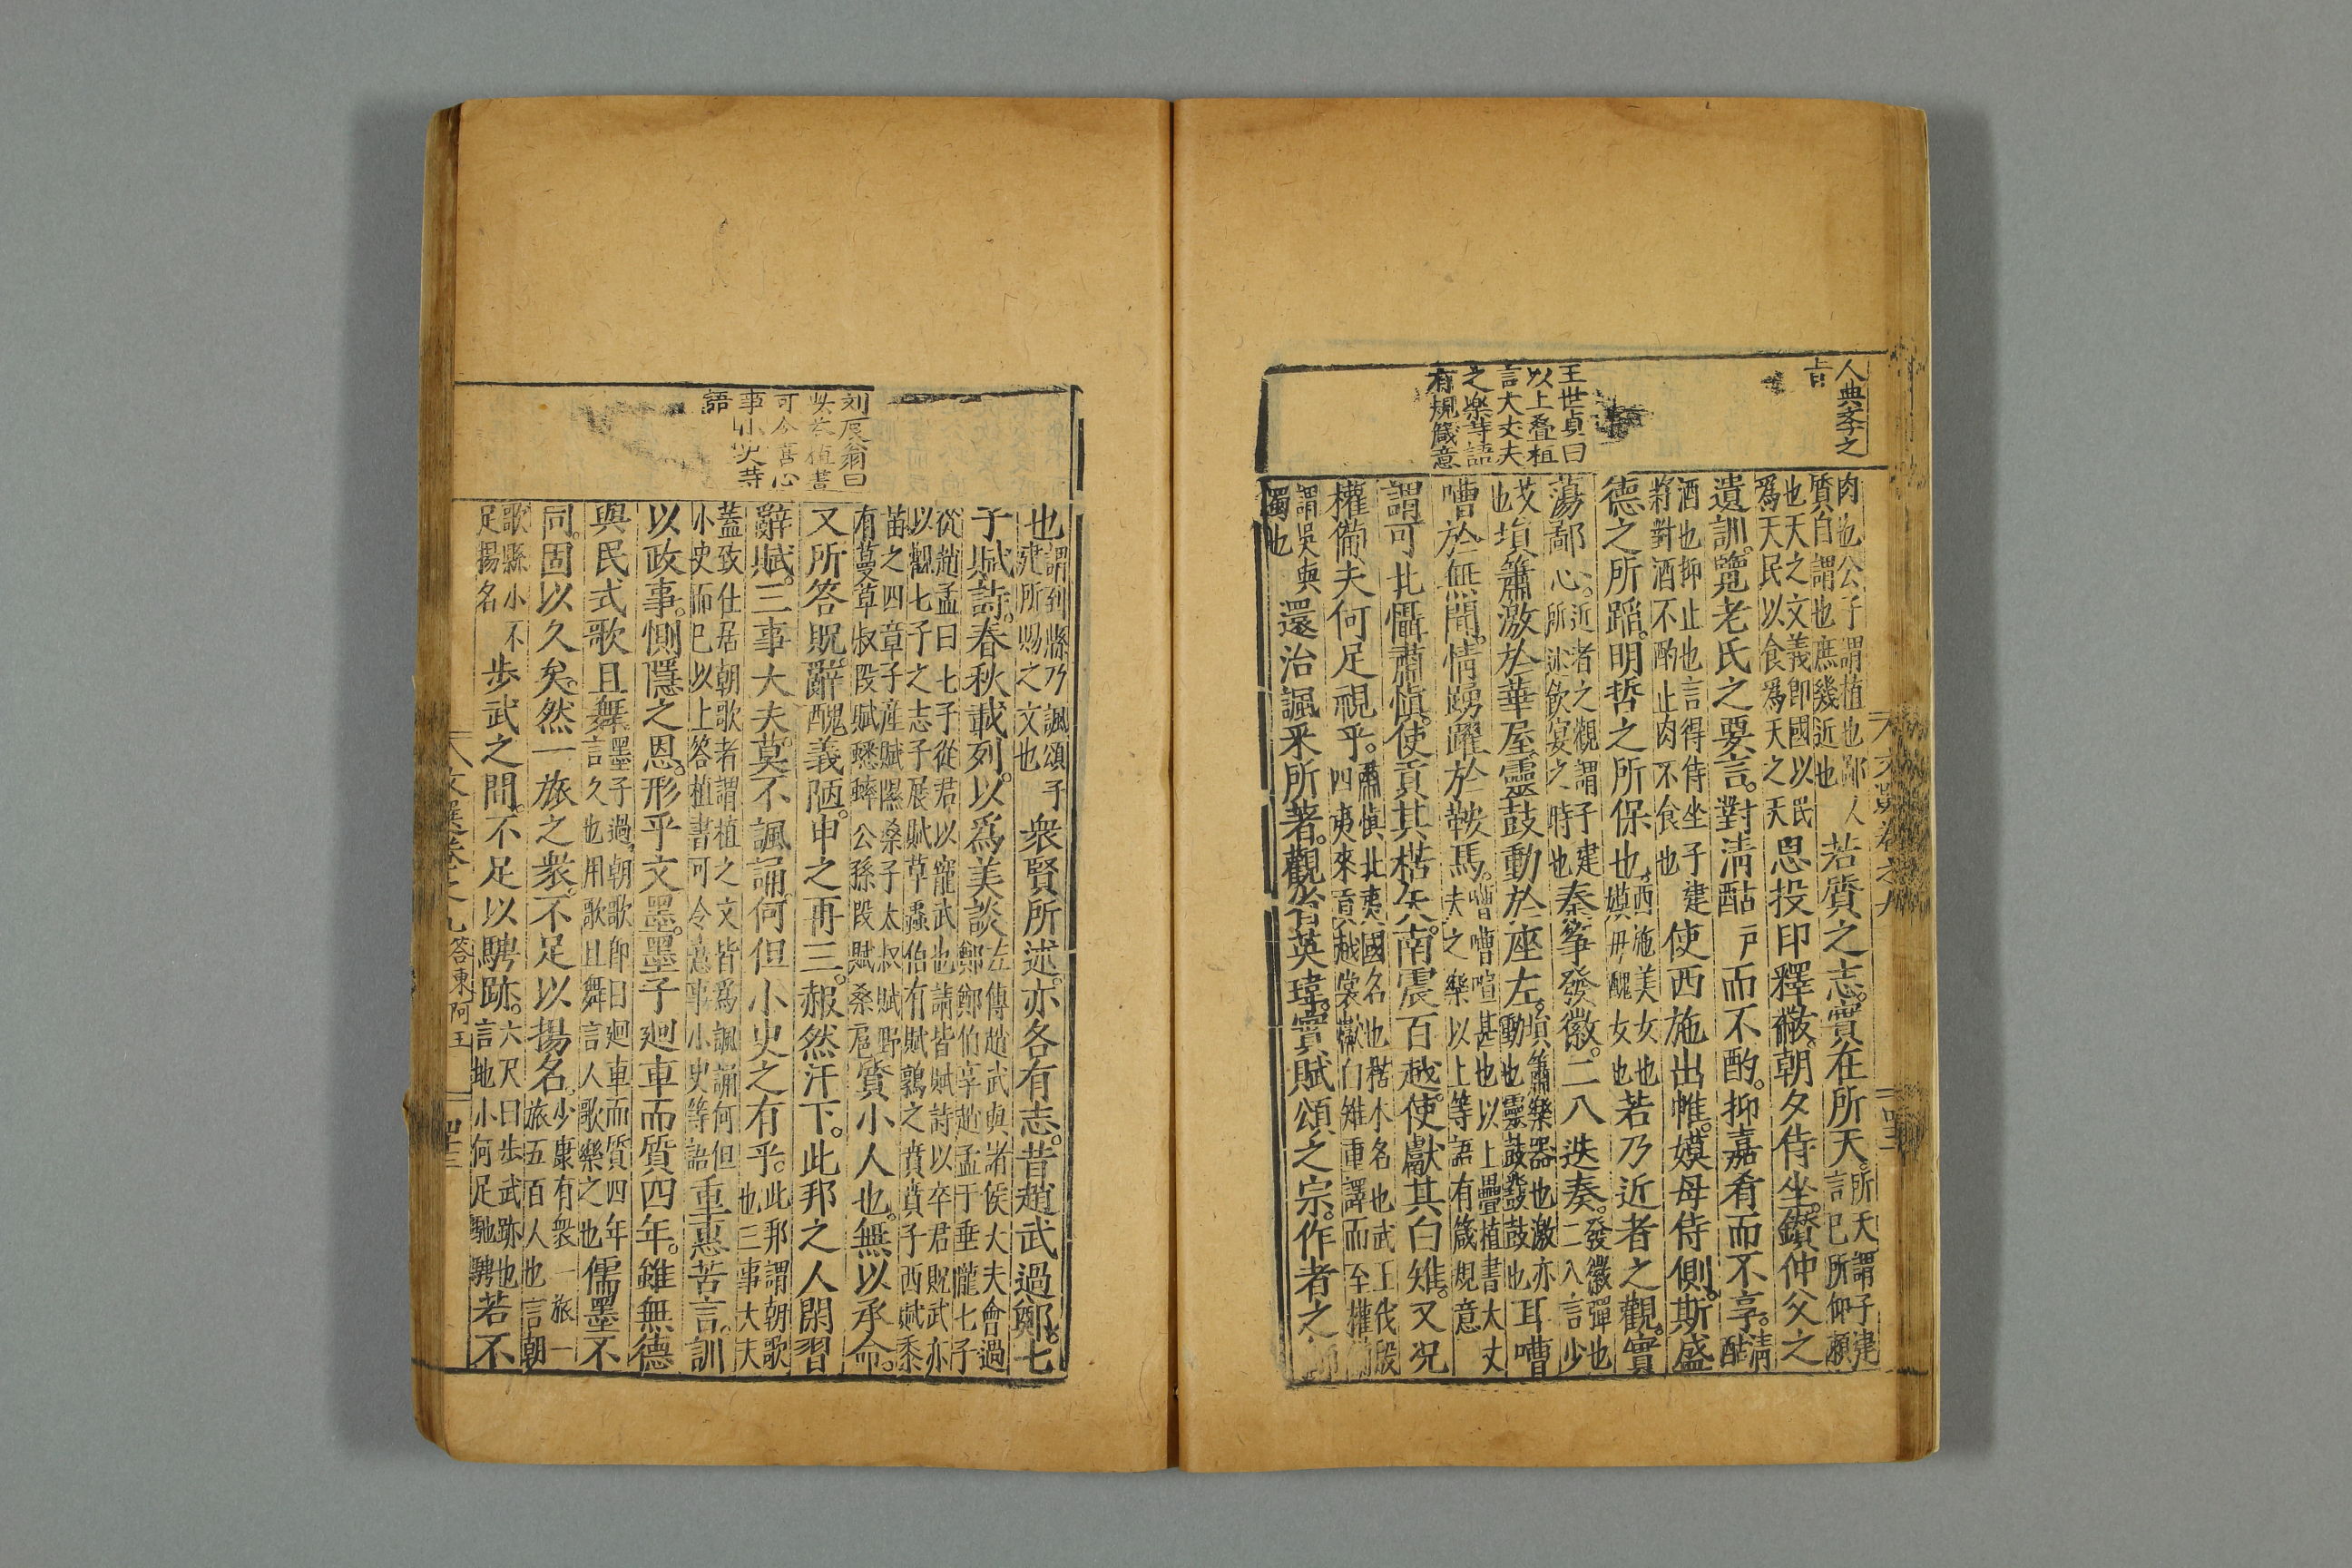 人典孝之
旨
王世貞曰
以上叠植
言大丈夫
之樂等語
有規箴意
肉也公子謂植也鄙人
質自謂也庶幾近也
若質之志實在所天
所天謂子建
言己所仰
也天之文義即國以民
爲天民以食爲天之天
恩投印釋黻朝夕侍坐鑽仲父之
遺訓覽老氏之要言對清酤而不酌抑嘉肴而不享
清
酤
酒也抑止也言得侍坐子建
對酒不酌止肉不食也
使西施出帷嫫母侍側斯盛
德之所蹈明哲之所保也
西施美女也
嫫母醜女也
若乃近者之觀實
蕩鄙心
近者之觀謂子建
所述飲宴之時也
秦箏發徽二八迭奏
發徽彈也
二八言少
艾
也
塤簫激於華屋靈鼓動於座左
塤簫樂器也激亦
動也靈鼓發鼓也
耳嘈
嘈於無聞情踴躍於鞍馬
嘈嘈喧甚也以上疊植書大丈
夫之樂以上等語有箴規意
謂可北懾肅慎使貢其楛矢南震百越使獻其白雉又况
權備夫何足視乎
肅慎北夷國名也楛木名也武王伐殷
四夷來貢越裳獻白雉重譯而至權
謂吳與
蜀也
還治諷采所著觀省英瑋實賦頌之宗作者之
文選卷之九
刘辰翁曰
語
也
謂到縣乃諷頌子
建所賜之文也
衆賢所述亦各有志昔趙武過鄭七
子賦詩春秋載列以爲美談
左傳趙武與諸侯大夫會過
鄭鄭伯享趙孟于垂隴七子
從趙孟曰七子從君以寵武也請皆賦詩以卒君貺武亦
以觀七子之志子展賦草蟲伯有賦鶉之賁賁子西賦黍
苗之四章子産賦隰桑子太叔賦野
有蔓草叔段賦蟋蟀公孫段賦桑扈
質小人也無以承命
又所答貺辭醜義陋申之再三赧然汗下此邦之人閑習
辭賦三事大夫莫不諷誦何但小史之有乎
此邦謂朝歌
也三事大夫
蓋致仕居朝歌者謂植之文皆爲諷誦何但
小史而已以上答植書可令憙事小史等語
重惠苦言訓
以政事惻隱之恩形乎文墨墨子迴車而質四年雖無德
與民式歌且舞
墨子過朝歌即曰迴車而質四年
言久也用歌且舞言人歌樂之也
儒墨不
同固以久矣然一旅之衆不足以揚名
少康有衆一旅一
旅五百人也言朝
歌縣小不
足揚名
步武之間不足以騁跡
六尺曰步武跡也
言地小何足馳騁
若不
文選卷之九
答東阿王